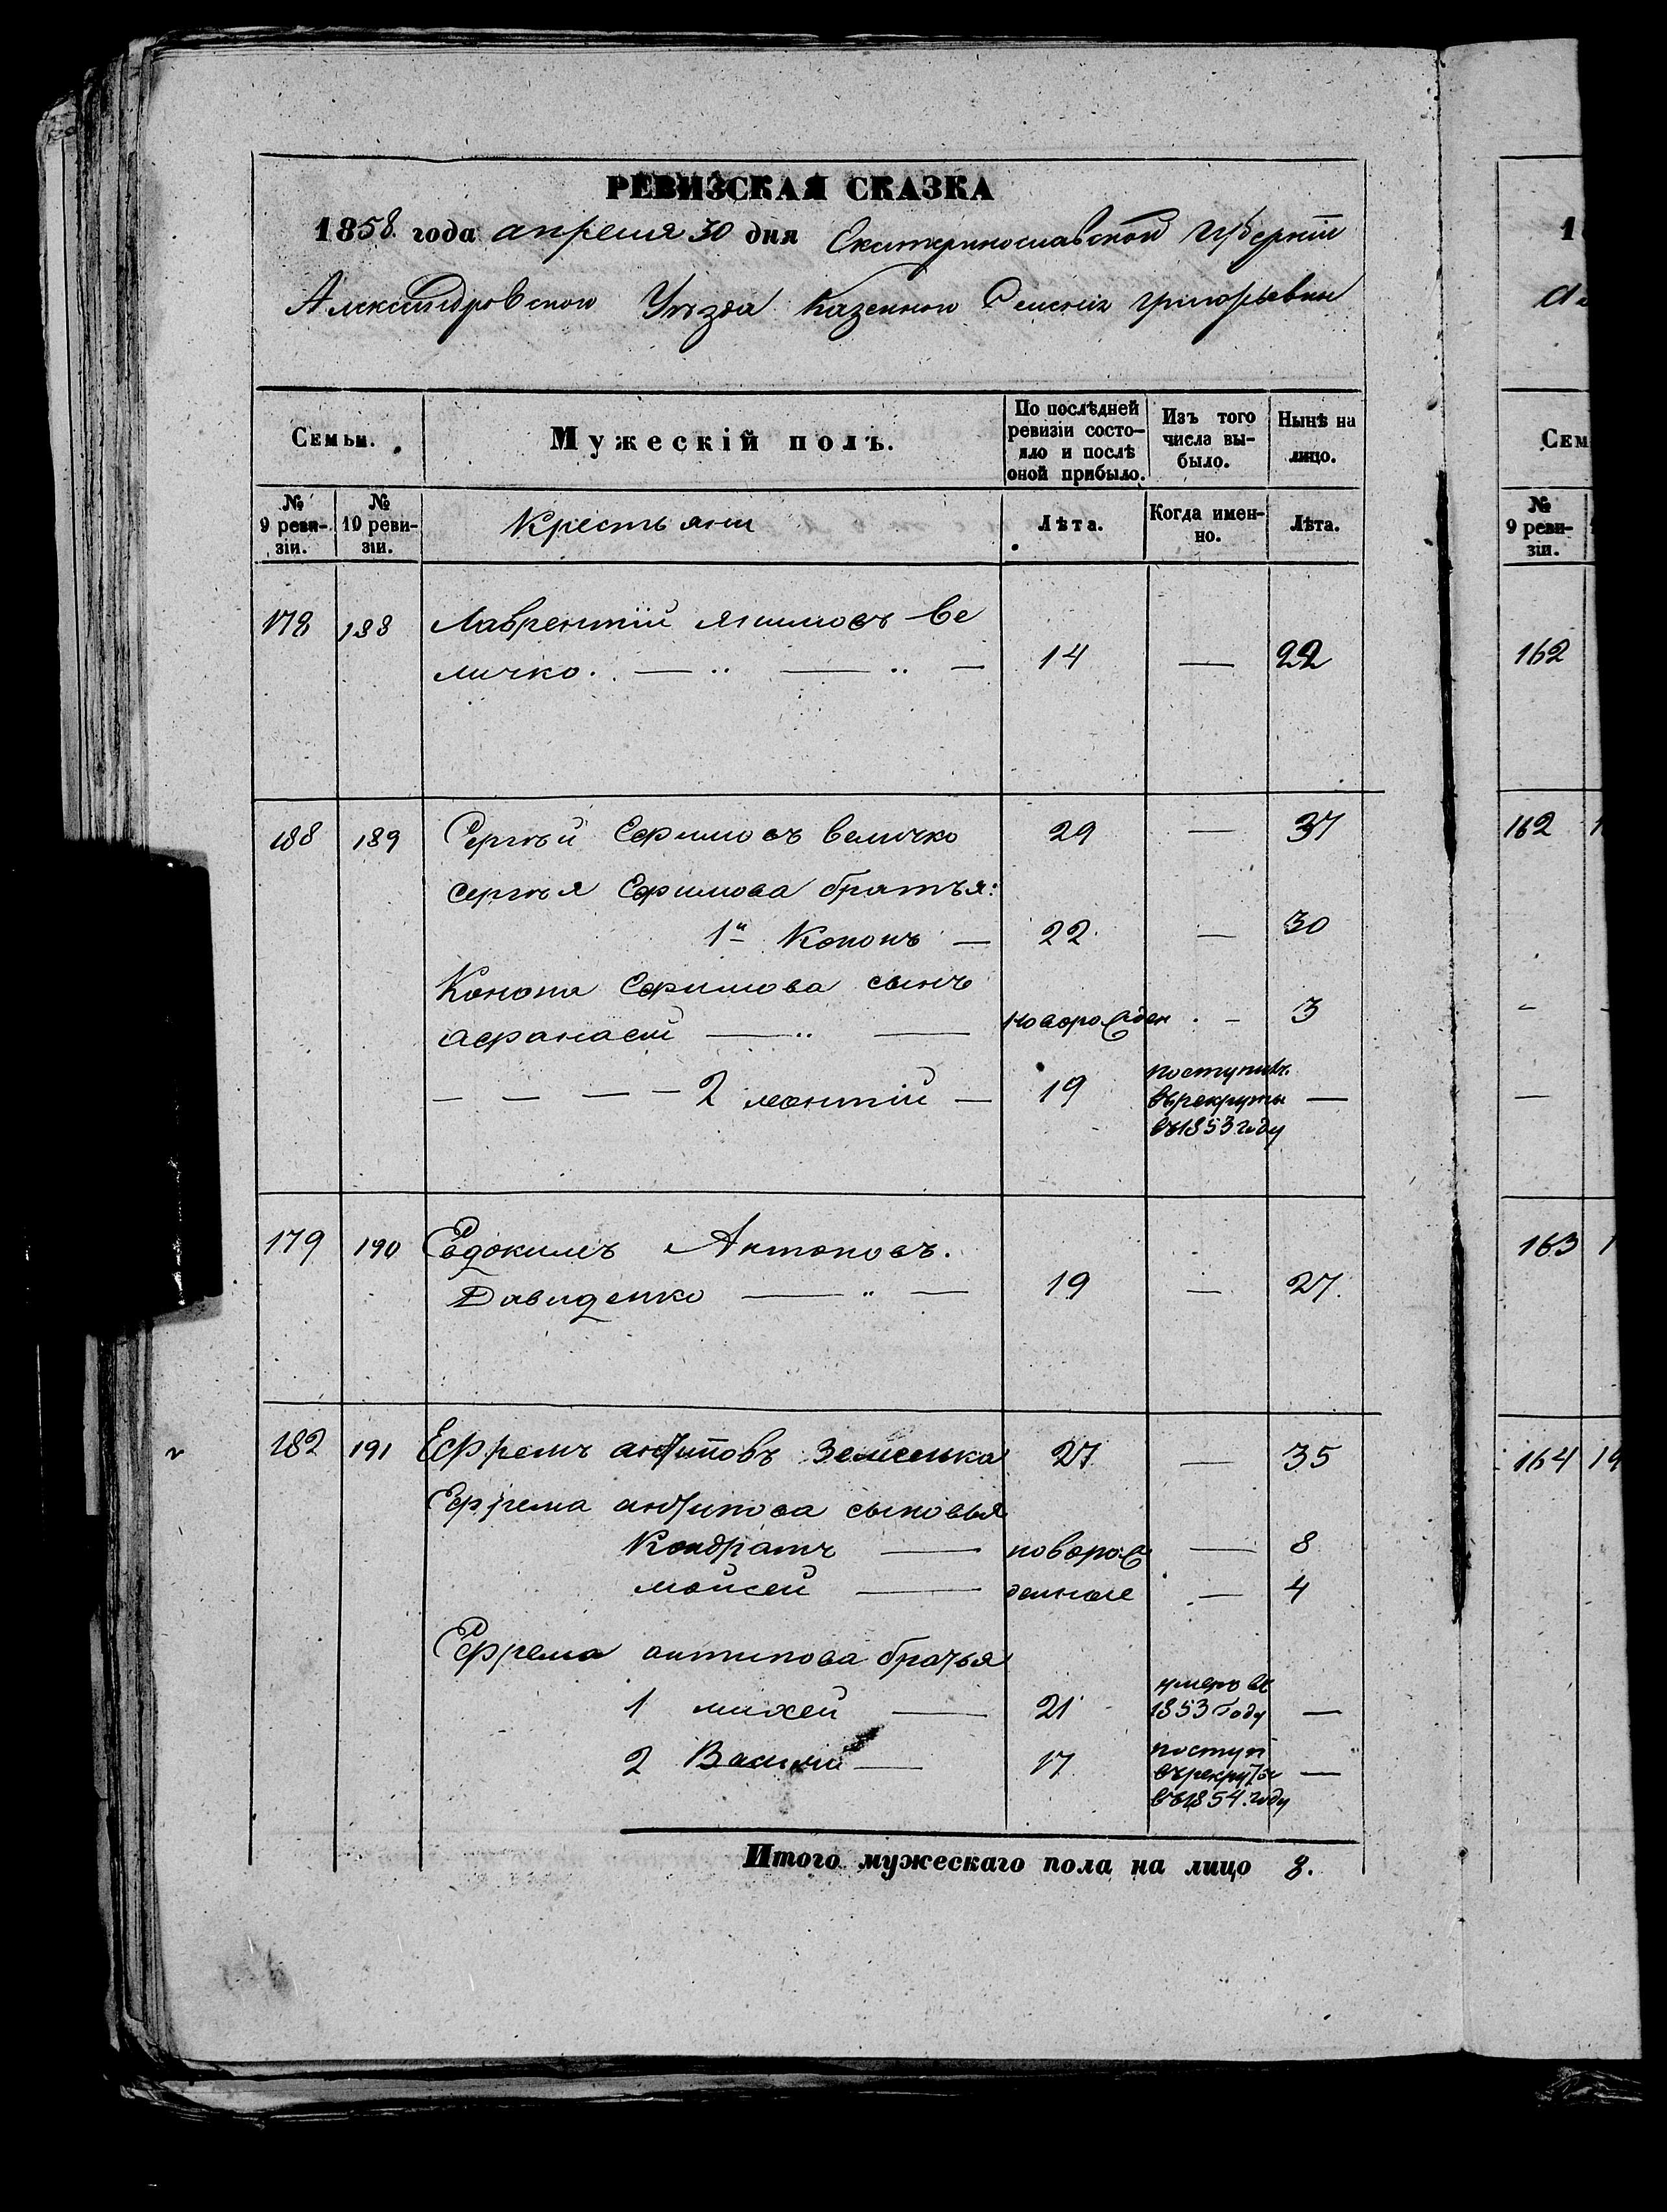 РЕВИЗСКАЯ СКАЗКА
1858 года апреля 30 дня Екатеринославской губернии
Александровского Уезда Казенного Селения григорьевки
Семьи.
Мужескій полъ.
По послѣдней ревизіи состояло и послѣ оной прибыло.
Изъ того числа выбыло.
Нынѣ на лицо.
№ 9 ревизіи.
№ 10 ревизіи.
Крестьяни
Лѣта.
Когда именно.
Лѣта.
178 188 Лаврентій Якимовъ Ве
личко. — " — " — 14 — 22
188 189 Сергѣй Ефимовъ величко 29 — 37
сергѣя Ефимова братья:
1й Кононъ — 22 — 30
Конона Ефимова сынъ
афанасий — " — новорожден — 3
— — — — 2 леонтій — 19 поступивъ
въ рекруты —
въ 1853 году
179 190 Евдокимъ Антоновъ.
Давиденко — " — 19 — 27
182 191 Ефремъ антиповъ 27 — 35
Ефрема антипова сыновья
Кондратъ — новорож — 8
мойсей — денные — 4
Ефрема антипова братья
1 михей — 21 умеръ въ
1853 году —
2 Василий — 17 поступ
въ рекруты —
въ 1854 году
Итого мужескаго пола на лицо 8.
1
Сем
№ 9 ревизіи.
162
162
163
164 19